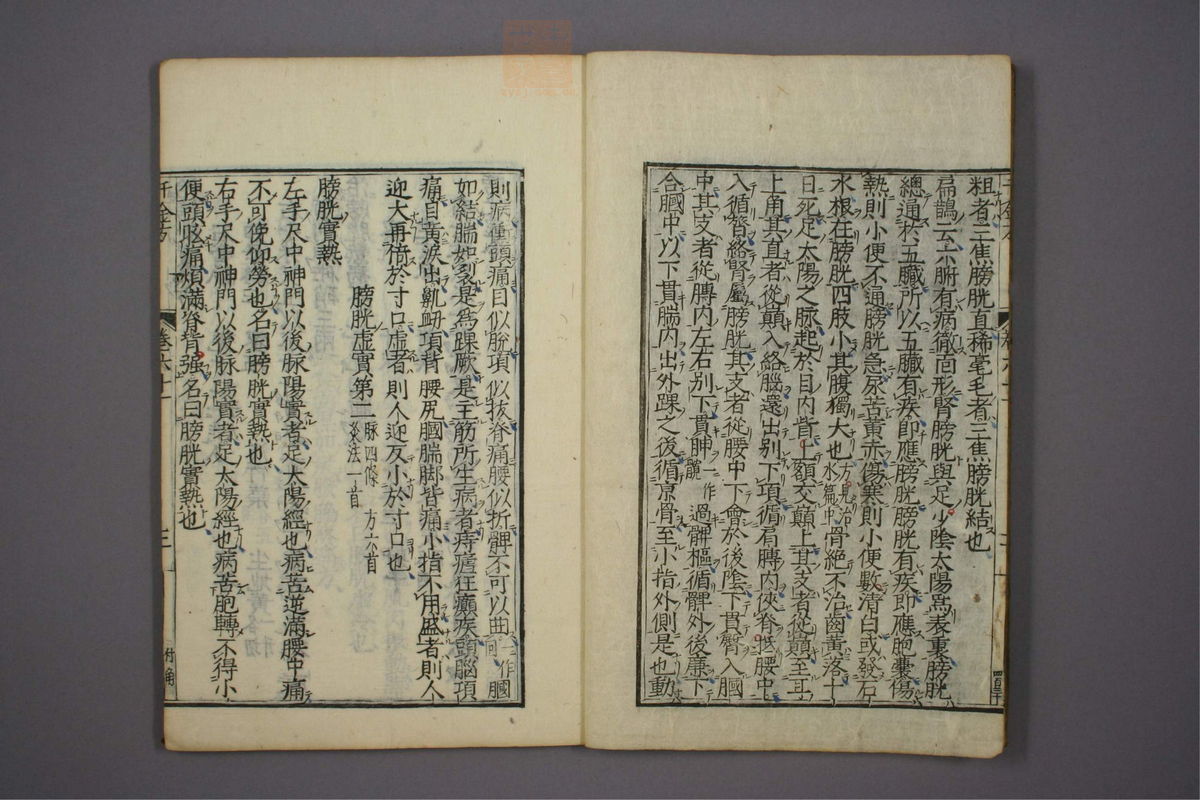 粗者三焦膀胱直稀毫毛者三焦膀胱結也
扁鵲云六腑有病徹面形腎膀胱與足少陰太陽爲表裏膀胱
總通於五臟所以五臟有疾即應膀胱膀胱有疾即應胞囊傷
熱則小便不通膀胱急尿苦黄赤傷寒則小便數清白或發石
水根在膀胱四肢小其腹獨大也方見治水篇中骨絶不治齒黄落十
日死足太陽之脉起於目内眥上額交顛上其支者從顛至耳
上角其直者從顛入絡腦還出别下項循肩膊内俠脊抵腰中
入循膂絡腎屬膀胱其支者從腰中下會於後陰下貫臀入膕
中其支者從膊内左右别下貫胂一作髖過髀樞循髀外後廉下
合膕中以下貫腨内出外踝之後循京骨至小指外側是也動
則病衝頭痛目似脱項似拔脊痛腰似折髀不可以曲膕
如結腨如裂是爲踝厥是主筋所生病者痔瘧狂癲疾頭腦項
痛目黄淚出鼽衄項背腰尻膕腨脚皆痛小指不用盛者則人
迎大再倍於寸口虚者則人迎反小於寸口也
膀胱虚實第二脉四條 方六首 灸法一首
膀胱實熱
左手尺中神門以後脉陽實者足太陽經也病苦逆滿腰中痛
不可俛仰勞也名曰膀胱實熱也
右手尺中神門以後脉陽實者足太陽經也病苦胞轉不得小
便頭眩痛煩滿脊背强名曰膀胱實熱也